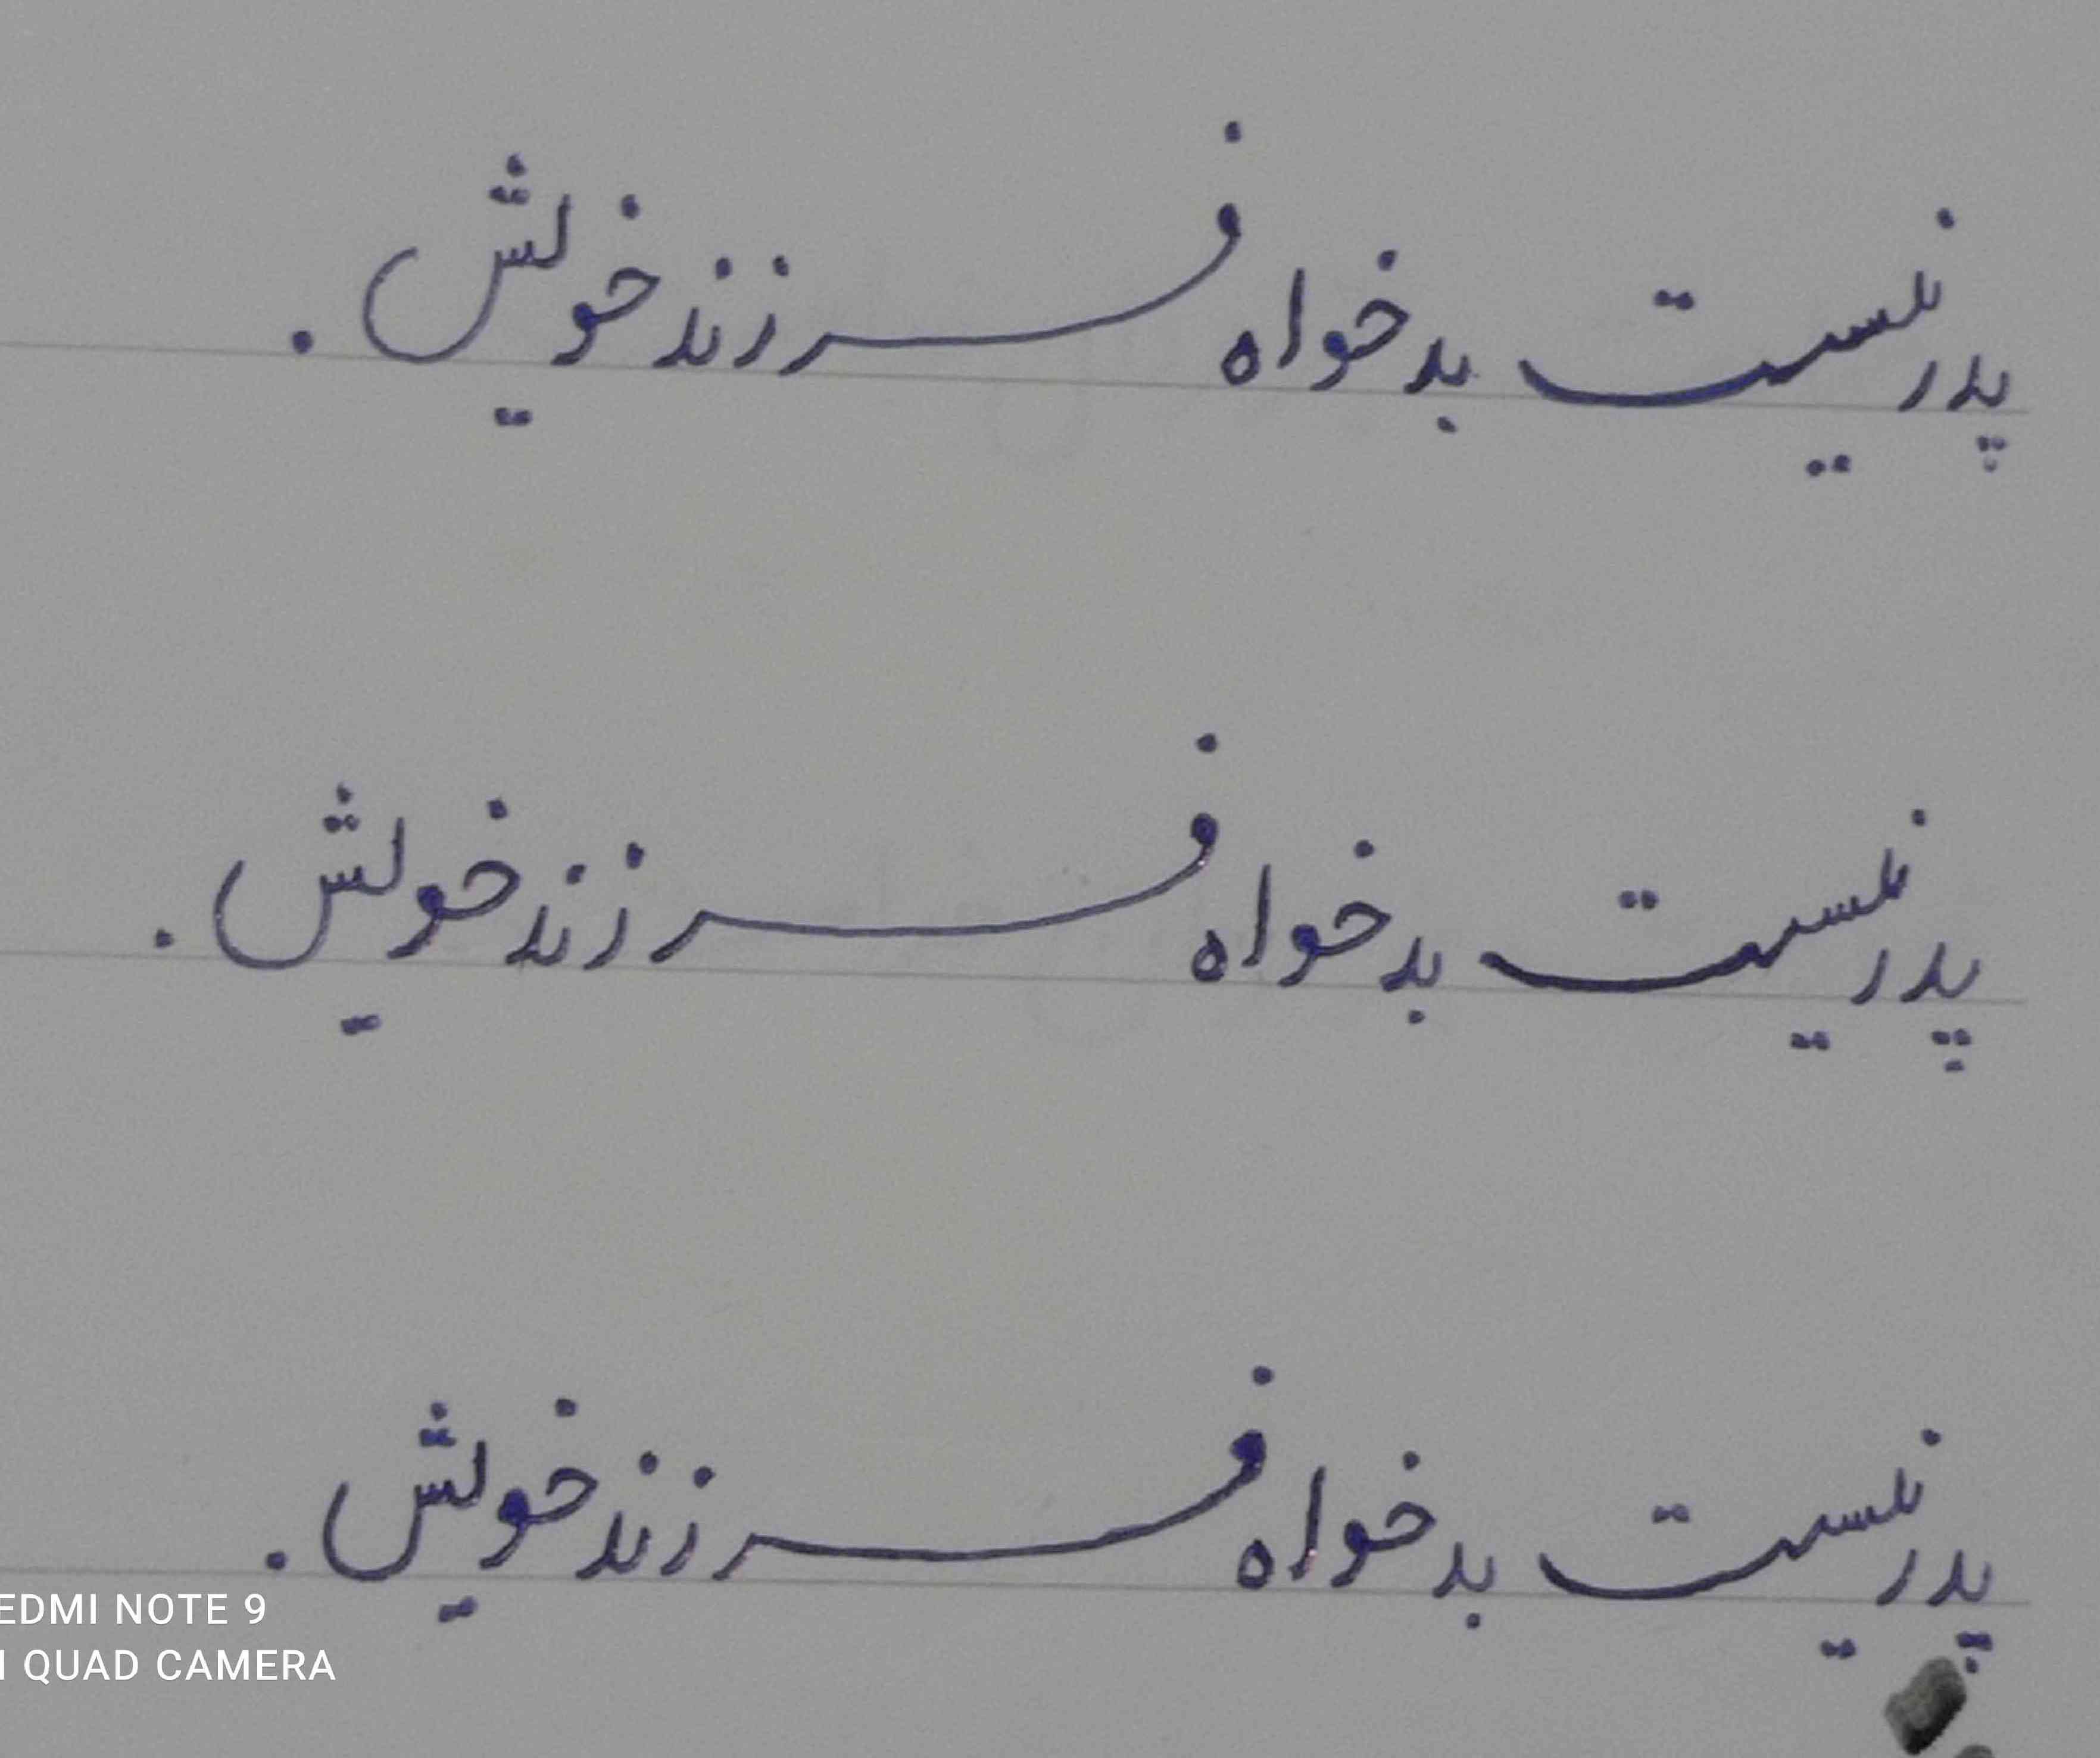 پدر نیست بدخواه فرزند خویش.
پدر نیست بدخواه فرزند خویش.
پدر نیست بدخواه فرزند خویش.
EDMI NOTE 9
I QUAD CAMERA